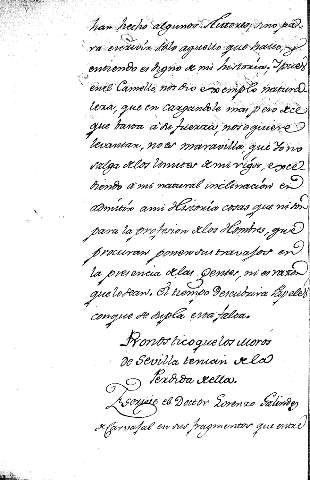 han hecho algunos Historᵒˢ, sino pa
ra escrivir solo aquello que hallo, y
entiendo es digno de mi historia. Y pues
en el Camello nos dio exemplo natura
leza, que en cargandole mas peso de el
que tiene de fuerzas, no se quiere
levantar, no es maravilla, que Yo no
salga de los limites de mi vigor, exce
diendo a mi natural inclinacion en
admitir a mi Historia cosas que ni son
para la profesion de los Hombres, que
procuran poner sus travajos en
la presencia de las Gentes, ni es razon
que lo sean. El tiempo descubrira
con que se supla esta falta.
Pronostico que los Moros
de Sevilla tenian de la
Perdida de ella.
Escrive el Doctor Lorenzo Galindez
de Carvajal en sus fragmentos que entre